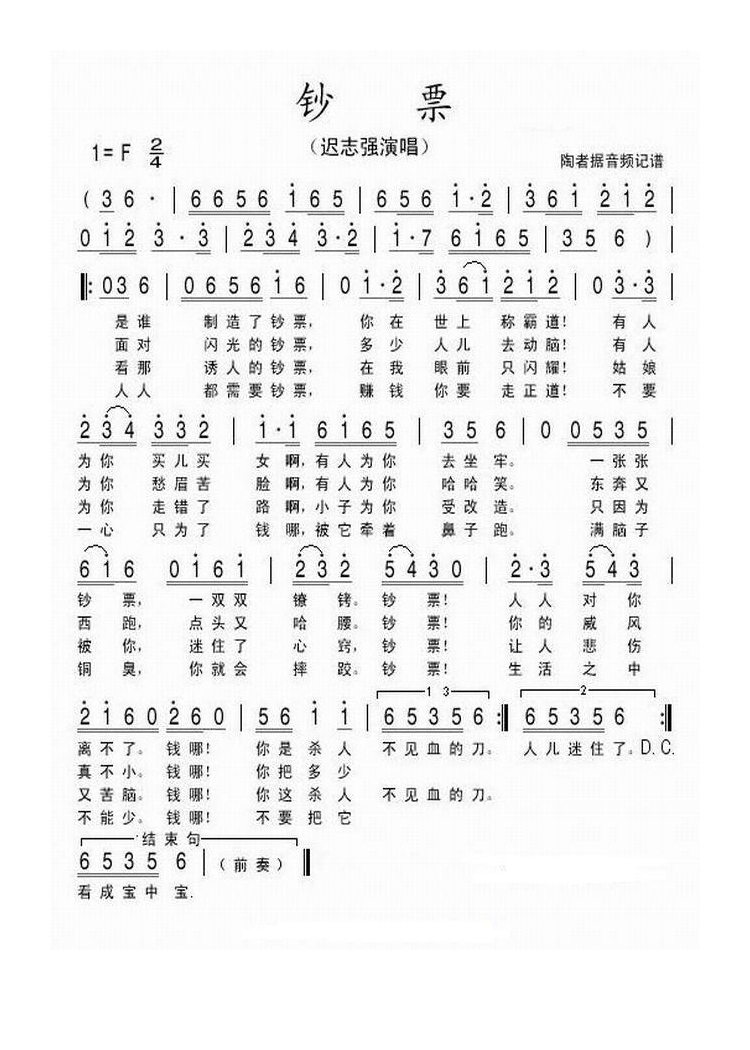 钞 票
(迟志强演唱)
1=F 2/4
陶者据音频记谱
( 3 6 · | 6 6 5 6 1 6 5 | 6 5 6 1 · 2 | 3 6 1 2 1 2 |
0 1 2 3 · 3 | 2 3 4 3 · 2 | 1 · 7 6 1 6 5 | 3 5 6 ) |
‖: 0 3 6 | 0 6 5 6 1 6 | 0 1 · 2 | 3 6 1 2 1 2 | 0 3 · 3 |
是谁 制造了钞票, 你在 世上 称霸道! 有人
面对 闪光的钞票, 多少 人儿 去动脑! 有人
看那 诱人的钞票, 在我 眼前 只闪耀! 姑娘
人人 都需要钞票, 赚钱 你要 走正道! 不要
2 3 4 3 3 2 | 1 · 1 6 1 6 5 | 3 5 6 | 0 0 5 3 5 |
为你 买儿买 女啊,有人为你 去坐牢。 一张张
为你 愁眉苦 脸啊,有人为你 哈哈笑。 东奔又
为你 走错了 路啊,小子为你 受改造。 只因为
一心 只为了 钱哪,被它牵着 鼻子跑。 满脑子
6 1 6 0 1 6 1 | 2 3 2 5 4 3 0 | 2 · 3 5 4 3 |
钞票, 一双双 镣铐。钞票! 人人 对你
西跑, 点头又 哈腰。钞票! 你的 威风
被你, 迷住了 心窍,钞票! 让人 悲伤
铜臭, 你就会 摔跤。钞票! 生活 之中
1 3
2
2 1 6 0 2 6 0 | 5 6 1 1 | 6 5 3 5 6 :‖ 6 5 3 5 6 :‖
离不了。钱哪! 你是杀人 不见血的刀。 人儿迷住了。D.C.
真不小。钱哪! 你把多少
又苦脑。钱哪! 你这杀人 不见血的刀。
不能少。钱哪! 不要把它
结束句
6 5 3 5 6 | (前奏) ‖
看成宝中宝.